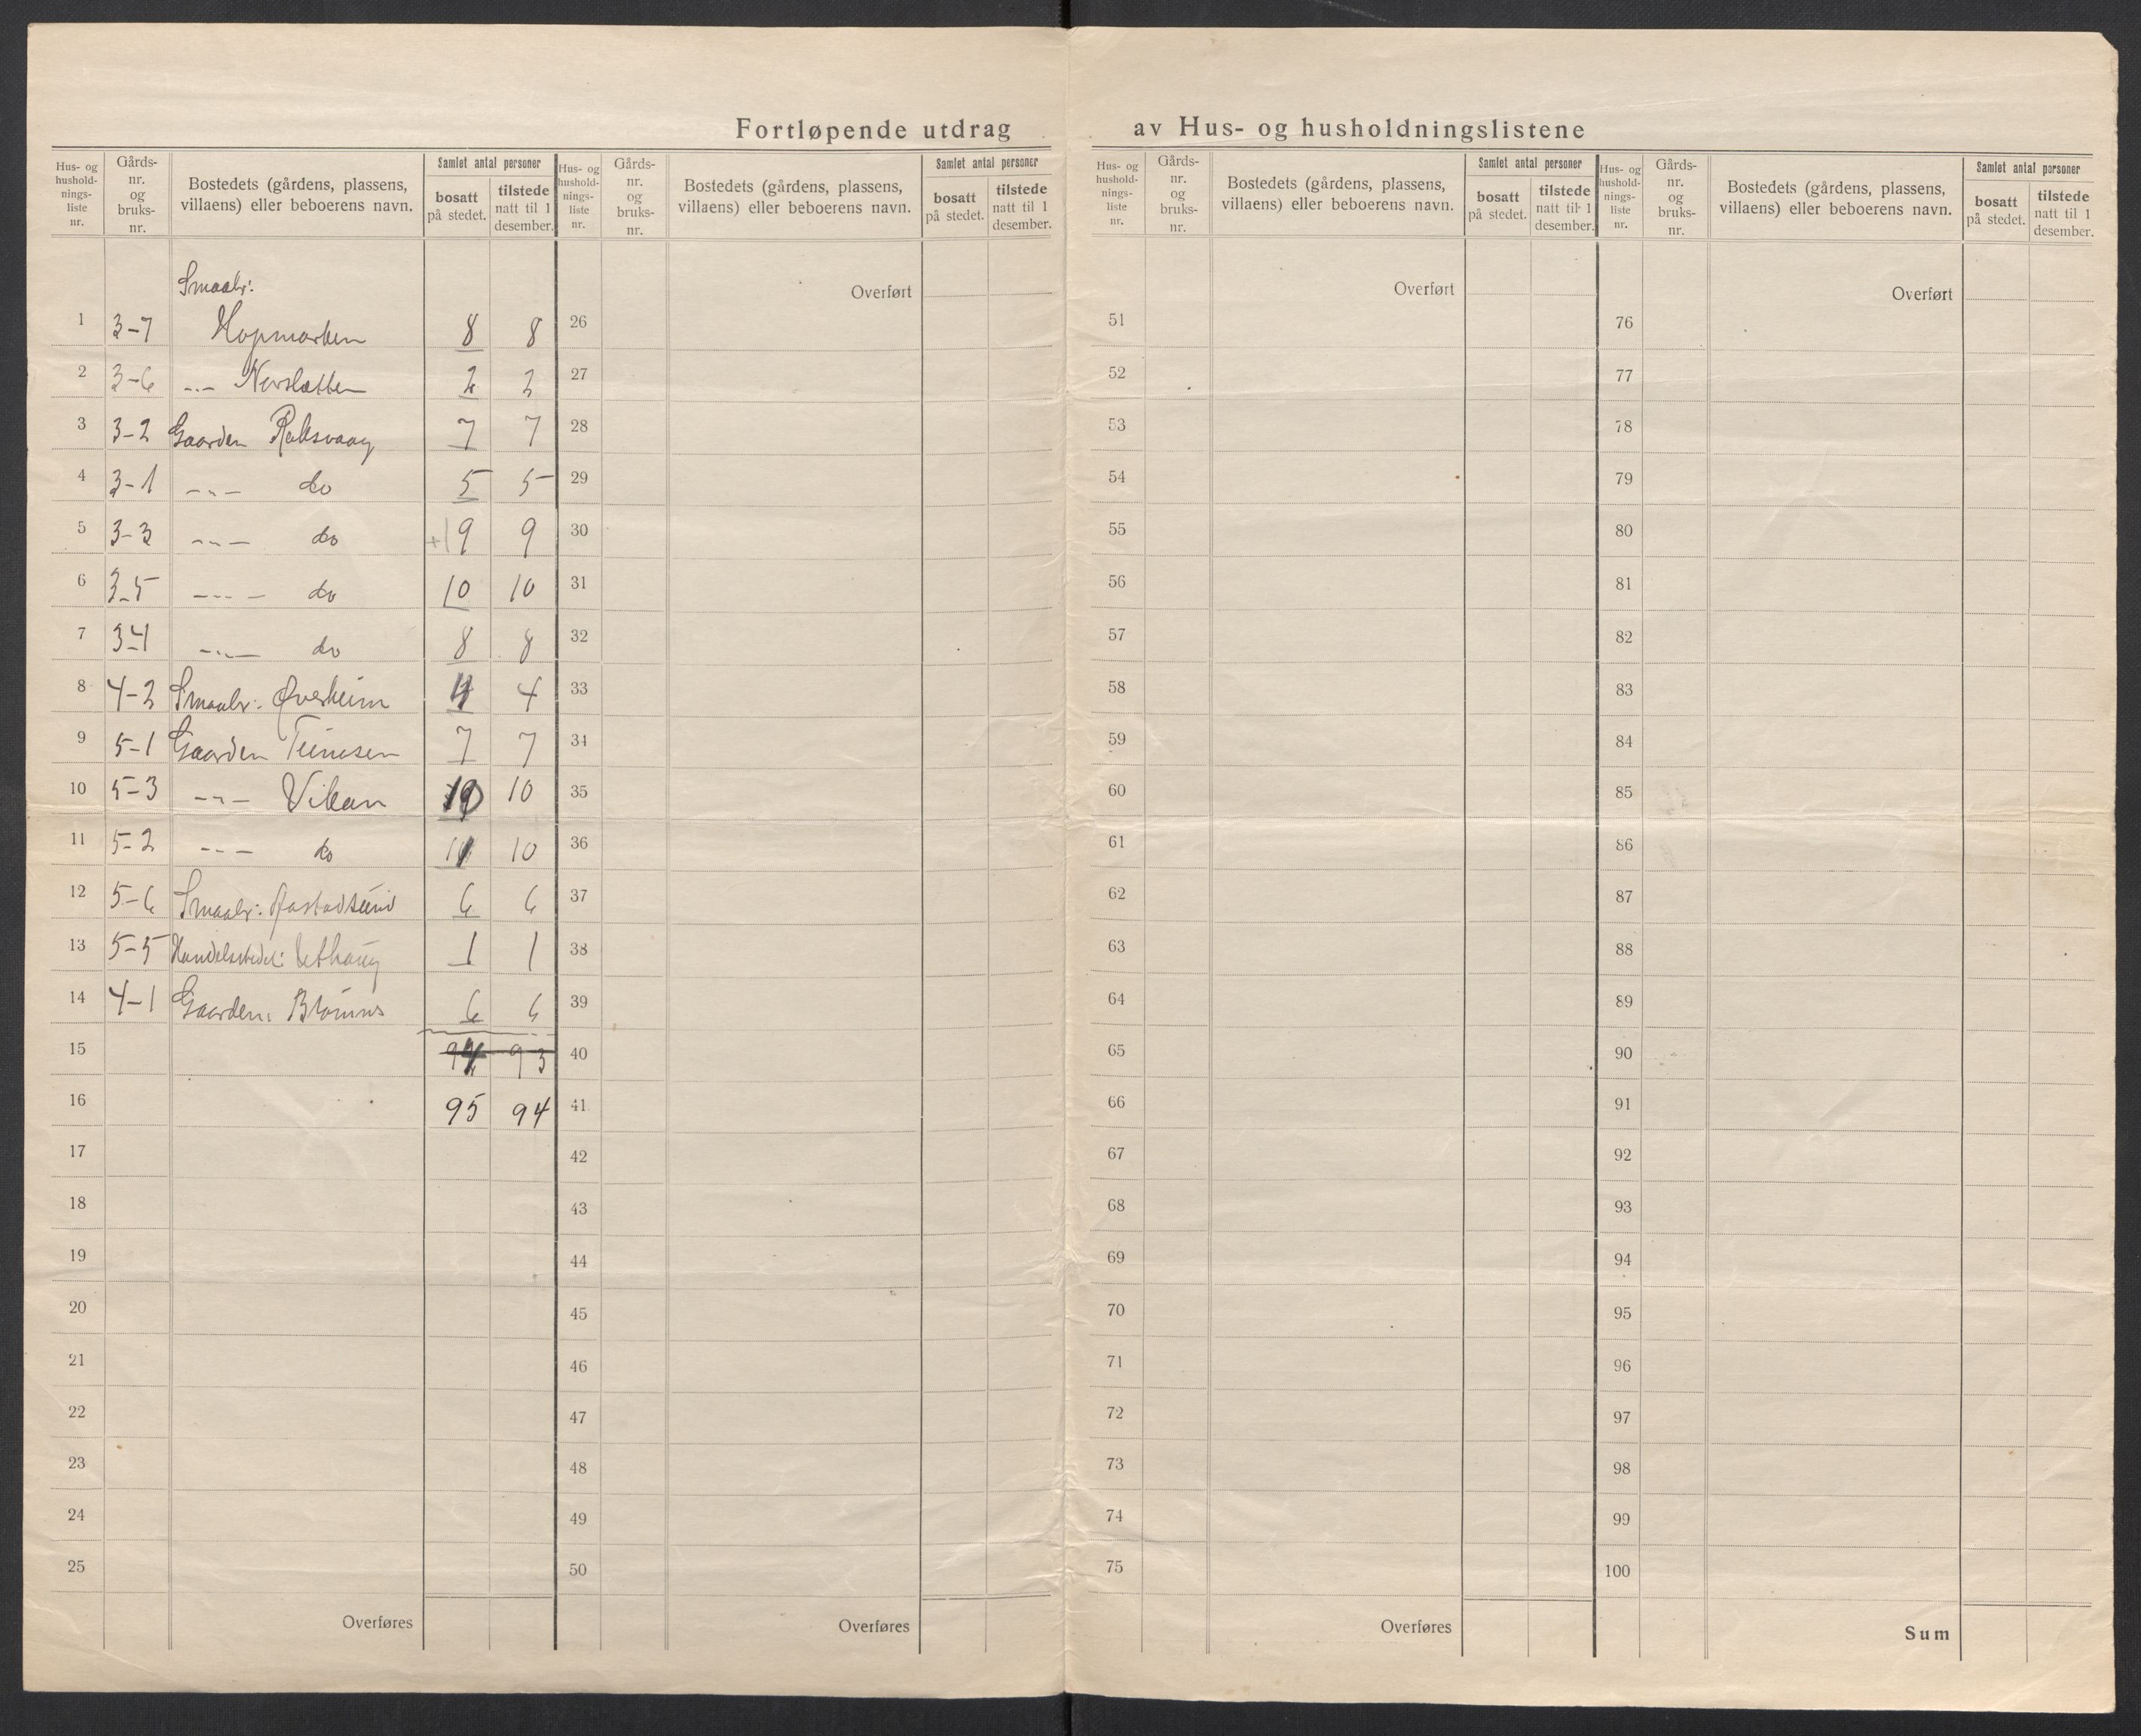 Fortløpende utdrag av Hus- og husholdningslistene
Hus- og hushold-nings-liste nr. Gårds-nr. og bruks-nr. Bostedets (gårdens, plassens, villaens) eller beboerens navn. Samlet antal personer bosatt på stedet. tilstede natt til 1 desember.
Hus- og hushold-nings-liste nr. Gårds-nr. og bruks-nr. Bostedets (gårdens, plassens, villaens) eller beboerens navn. Samlet antal personer bosatt på stedet. tilstede natt til 1 desember.
Hus- og hushold-nings-liste nr. Gårds-nr. og bruks-nr. Bostedets (gårdens, plassens, villaens) eller beboerens navn. Samlet antal personer bosatt på stedet. tilstede natt til 1 desember.
Hus- og hushold-nings-liste nr. Gårds-nr. og bruks-nr. Bostedets (gårdens, plassens, villaens) eller beboerens navn. Samlet antal personer bosatt på stedet. tilstede natt til 1 desember.
Smaabr:
Overført Overført Overført
1 3-7 Hopmarken 8 8 26 51 76
2 3-6 -"- 2 2 27 52 77
3 3-2 Gaarden Raksvaag 7 7 28 53 78
4 3-1 -"- do 5 5 29 54 79
5 3-3 -"- do +1 9 9 30 55 80
6 3-5 -"- do 10 10 31 56 81
7 3-4 -"- do 8 8 32 57 82
8 4-2 Smaabr: Øverheim 4 4 33 58 83
9 5-1 Gaarden 7 7 34 59 84
10 5-3 -"- Vikan 10 10 35 60 85
11 5-2 -"- do 11 10 36 61 86
12 5-6 Smaabr: 6 6 37 62 87
13 5-5 Handelsstedet: Uthaug 1 1 38 63 88
14 4-1 Gaarden: 6 6 39 64 89
15 94 93 40 65 90
16 95 94 41 66 91
17 42 67 92
18 43 68 93
19 44 69 94
20 45 70 95
21 46 71 96
22 47 72 97
23 48 73 98
24 49 74 99
25 50 75 100
Overføres Overføres Overføres Sum